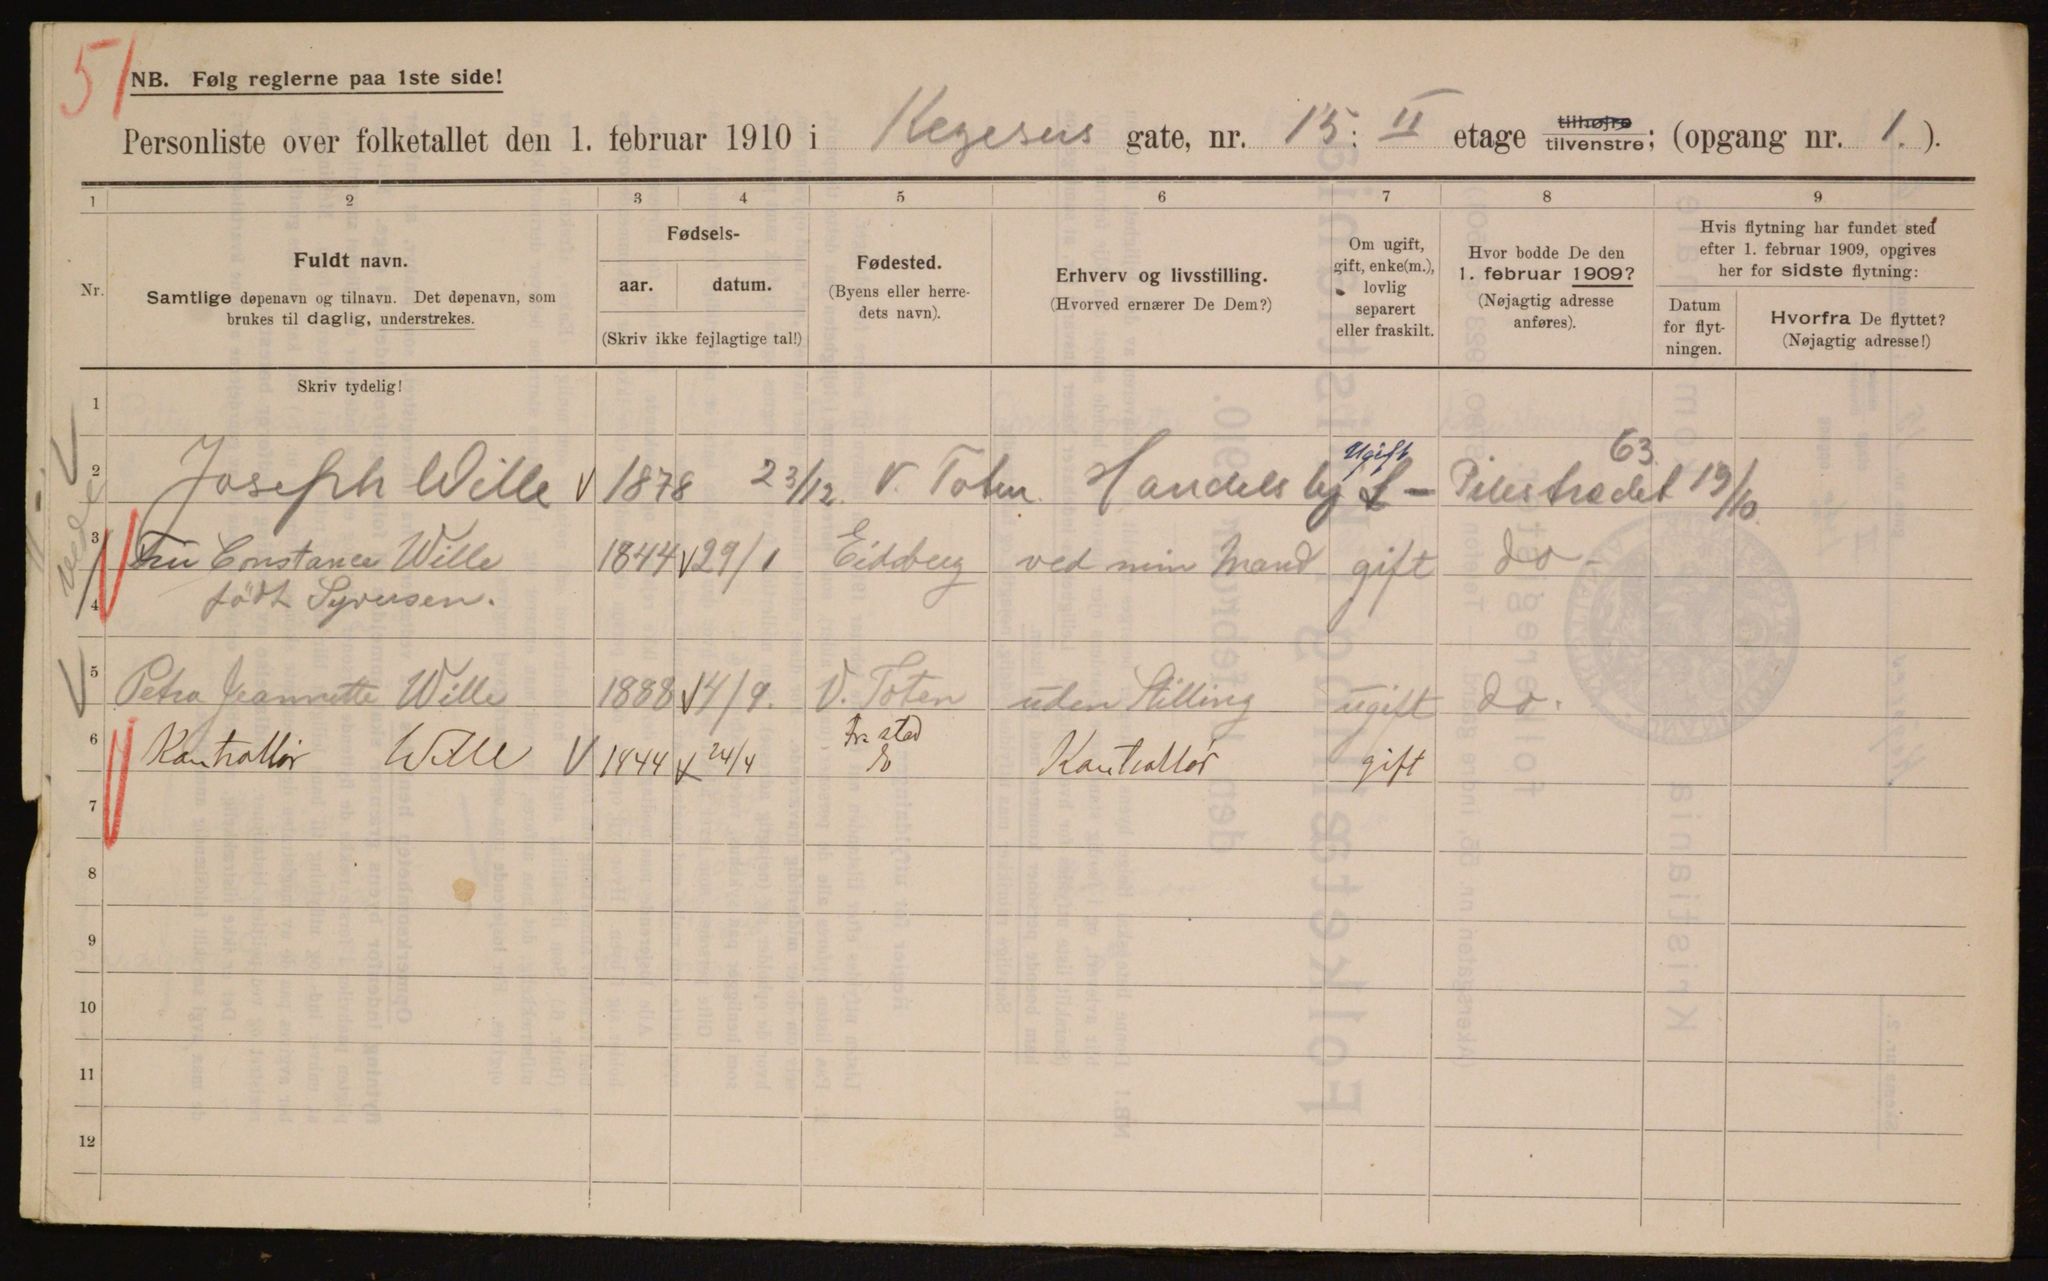 51
NB. Følg reglerne paa 1ste side!
Personliste over folketallet den 1. februar 1910 i Kegesus gate, nr. 15: II etage tilhøjre tilvenstre; (opgang nr. 1.).
1 2 3 4 5 6 7 8 9
Nr.
Fuldt navn.
Samtlige døpenavn og tilnavn. Det døpenavn, som
brukes til daglig, understrekes.
Fødsels-
aar. datum.
(Skriv ikke fejlagtige tal!)
Fødested.
(Byens eller herre-
dets navn).
Erhverv og livsstilling.
(Hvorved ernærer De Dem?)
Om ugift,
gift, enke(m.),
lovlig
separert
eller fraskilt.
Hvor bodde De den
1. februar 1909?
(Nøjagtig adresse
anføres).
Hvis flytning har fundet sted
efter 1. februar 1909, opgives
her for sidste flytning:
Datum
for flyt-
ningen.
Hvorfra De flyttet?
(Nøjagtig adresse!)
Skriv tydelig!
1
2 Joseph Wille 1878 23/12 V. Toten Handelsbg Ugift Pilestrædet 63 19/10
3 Fru Constance Wille 1844 29/1 Eidsberg ved min Mand gift do
4 født Syversen.
5 Petra Jeannette Wille 1888 14/9. V. Toten uden Stilling ugift do.
6 Kontrollør Wille 1844 24/4 Kontrollør gift
7
8
9
10
11
12